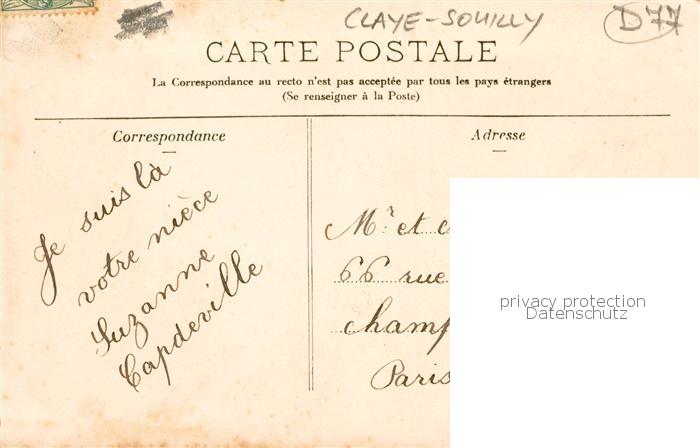 CLAYE-SOUILLY
D77
CARTE POSTALE
La Correspondance au recto n'est pas acceptée par tous les pays étrangers
(Se renseigner à la Poste)
Correspondance
Adresse
Je suis là
votre nièce
Suzanne
Capdeville
Mr et
66 rue
champ
Paris
privacy protection
Datenschutz